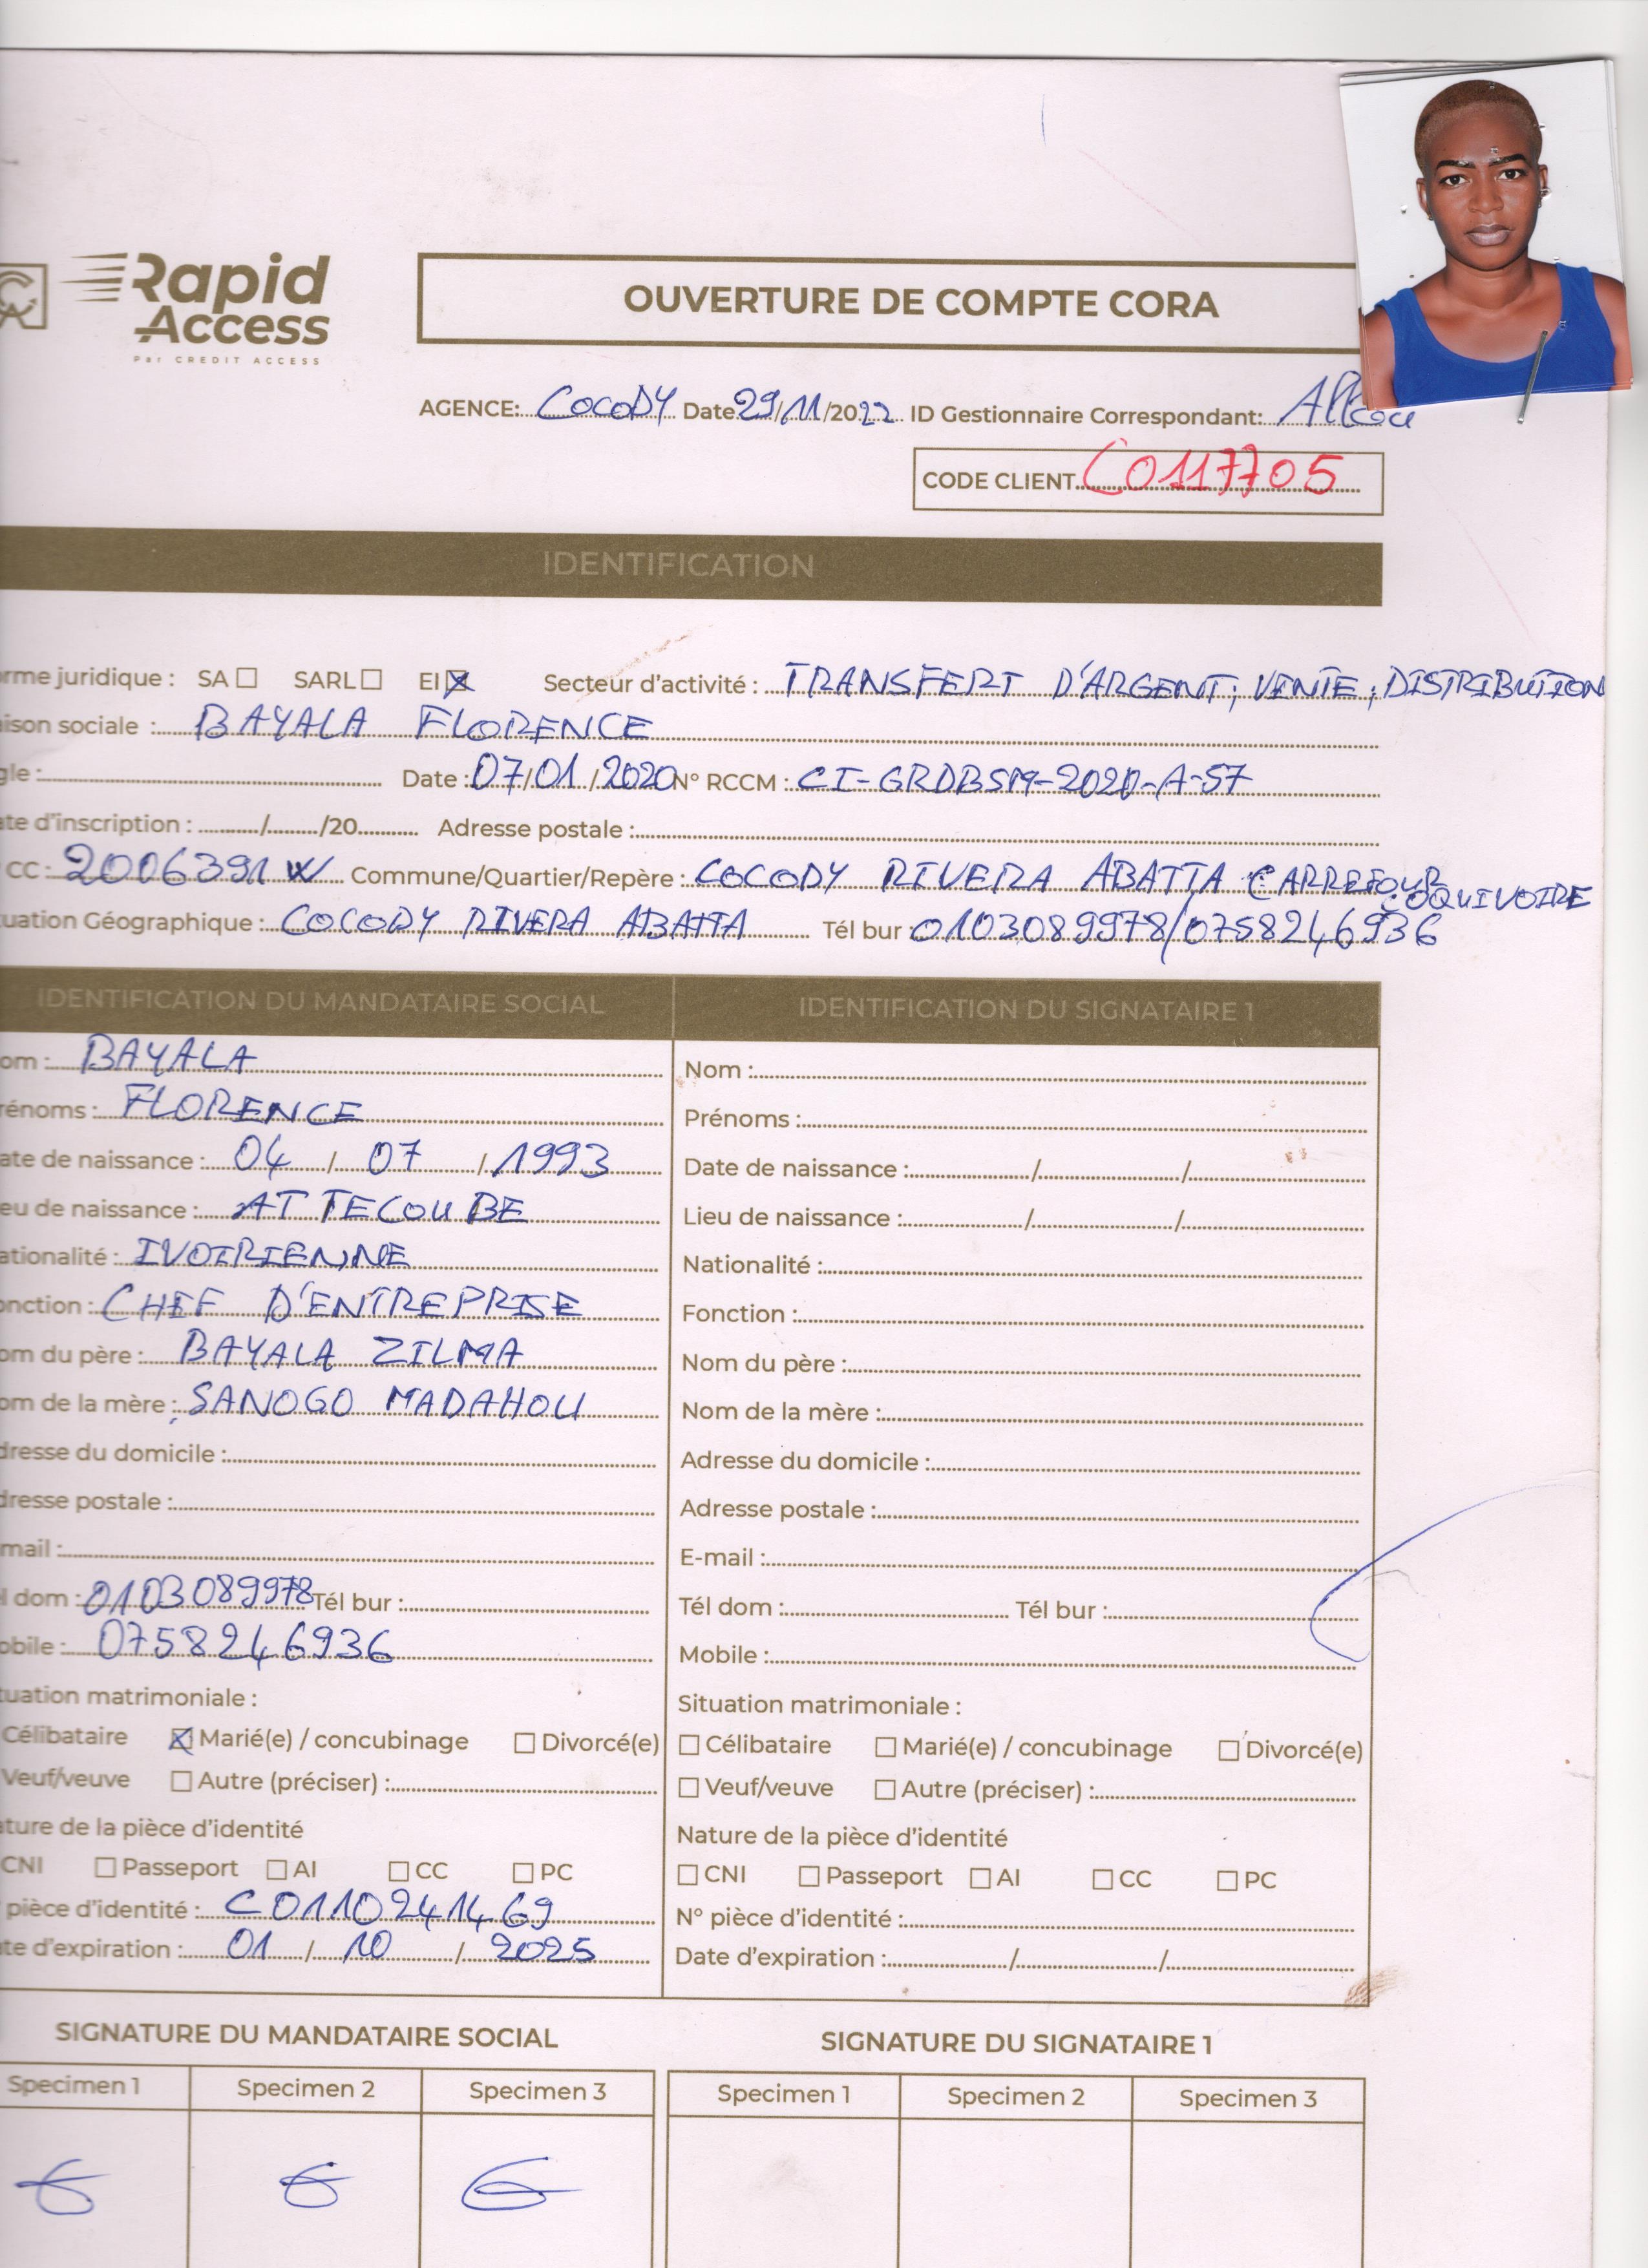 Rapid
Access
Par CREDIT ACCESS
OUVERTURE DE COMPTE CORA
AGENCE: COCODY Date 29/11/2022 ID Gestionnaire Correspondant:
CODE CLIENT C0117705
IDENTIFICATION
rme juridique : SA SARL EI Secteur d'activité : TRANSFERT D'ARGENT; VENTE; DISTRIBUTION
ison sociale : BAYALA FLORENCE
gle : Date : 07/01/2020 N° RCCM : CI-GRDBSM-2020-A-57
ate d'inscription : / /20 Adresse postale :
CC : 2006391 W Commune/Quartier/Repère : COCODY RIVERA ABATTA CARREFOUR
uation Géographique : COCODY RIVERA ABATTA Tél bur : 0103089978/0758246936
IDENTIFICATION DU MANDATAIRE SOCIAL IDENTIFICATION DU SIGNATAIRE 1
om : BAYALA Nom :
rénoms : FLORENCE Prénoms :
ate de naissance : 04 / 07 / 1993 Date de naissance : / /
eu de naissance : ATTECOUBE Lieu de naissance : / /
ationalité : IVOIRIENNE Nationalité :
onction : CHEF D'ENTREPRISE Fonction :
om du père : BAYALA ZILMA Nom du père :
om de la mère : SANOGO MADAHOU Nom de la mère :
dresse du domicile : Adresse du domicile :
dresse postale : Adresse postale :
mail : E-mail :
l dom : 0103089978 Tél bur : Tél dom : Tél bur :
obile : 0758246936 Mobile :
tuation matrimoniale : Situation matrimoniale :
Célibataire Marié(e) / concubinage Divorcé(e) Célibataire Marié(e) / concubinage Divorcé(e)
Veuf/veuve Autre (préciser) : Veuf/veuve Autre (préciser) :
ture de la pièce d'identité Nature de la pièce d'identité
CNI Passeport AI CC PC CNI Passeport AI CC PC
pièce d'identité : C0110241469 N° pièce d'identité :
te d'expiration : 01 / 10 / 2025 Date d'expiration : / /
SIGNATURE DU MANDATAIRE SOCIAL SIGNATURE DU SIGNATAIRE 1
Specimen 1 Specimen 2 Specimen 3 Specimen 1 Specimen 2 Specimen 3